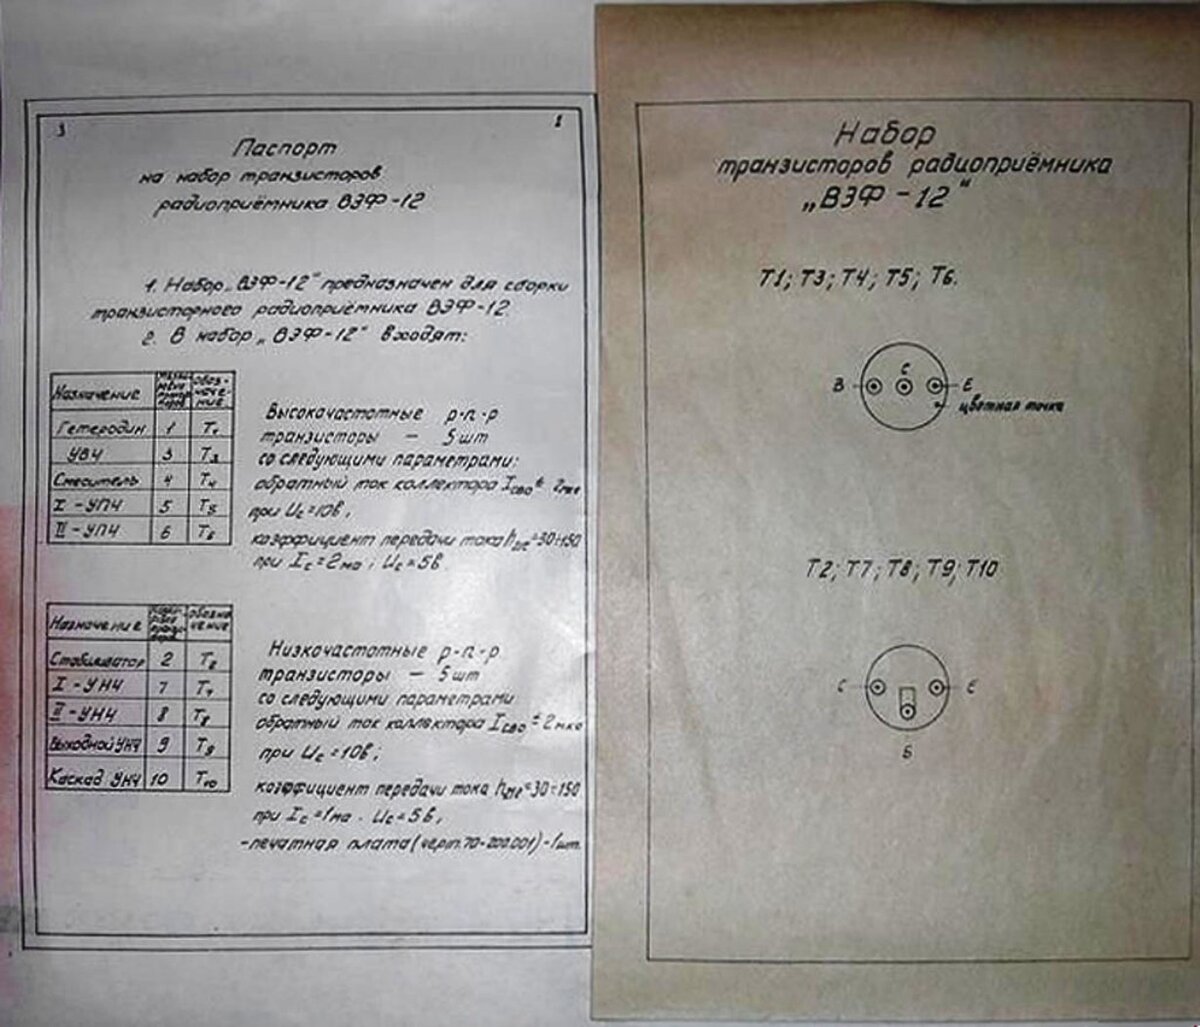 3 1
Паспорт
на набор транзисторов
радиоприёмника ВЭФ-12
1. Набор „ВЭФ-12" предназначен для сборки
транзисторного радиоприёмника ВЭФ-12
2. В набор „ВЭФ-12" входят:
Назначение обозначение
Гетеродин 1 Т1
УВЧ 3 Т3
Смеситель 4 Т4
I-УПЧ 5 Т5
II-УПЧ 6 Т6
Высокочастотные р-п-р
транзисторы — 5шт
со следующими параметрами:
обратный ток коллектора Iсво
при Uс=10в,
коэффициент передачи тока h =30÷150
при Iс=2ма; Uс=5в
Назначение обозначение
Стабилизатор 2 Т2
I-УНЧ 7 Т7
II-УНЧ 8 Т8
Выходной УНЧ 9 Т9
Каскад УНЧ 10 Т10
Низкочастотные р-п-р
транзисторы — 5шт
со следующими параметрами
обратный ток коллектора Iсво 2мка
при Uс=10в;
коэффициент передачи тока h =30÷150
при Iс=1ма. Uс=5в,
-печатная плата (черт.70-200.001)-1шт.
Набор
транзисторов радиоприёмника
„ВЭФ-12"
Т1; Т3; Т4; Т5; Т6.
С
В Е
цветная точка
Т2; Т7; Т8; Т9; Т10
С Е
Б